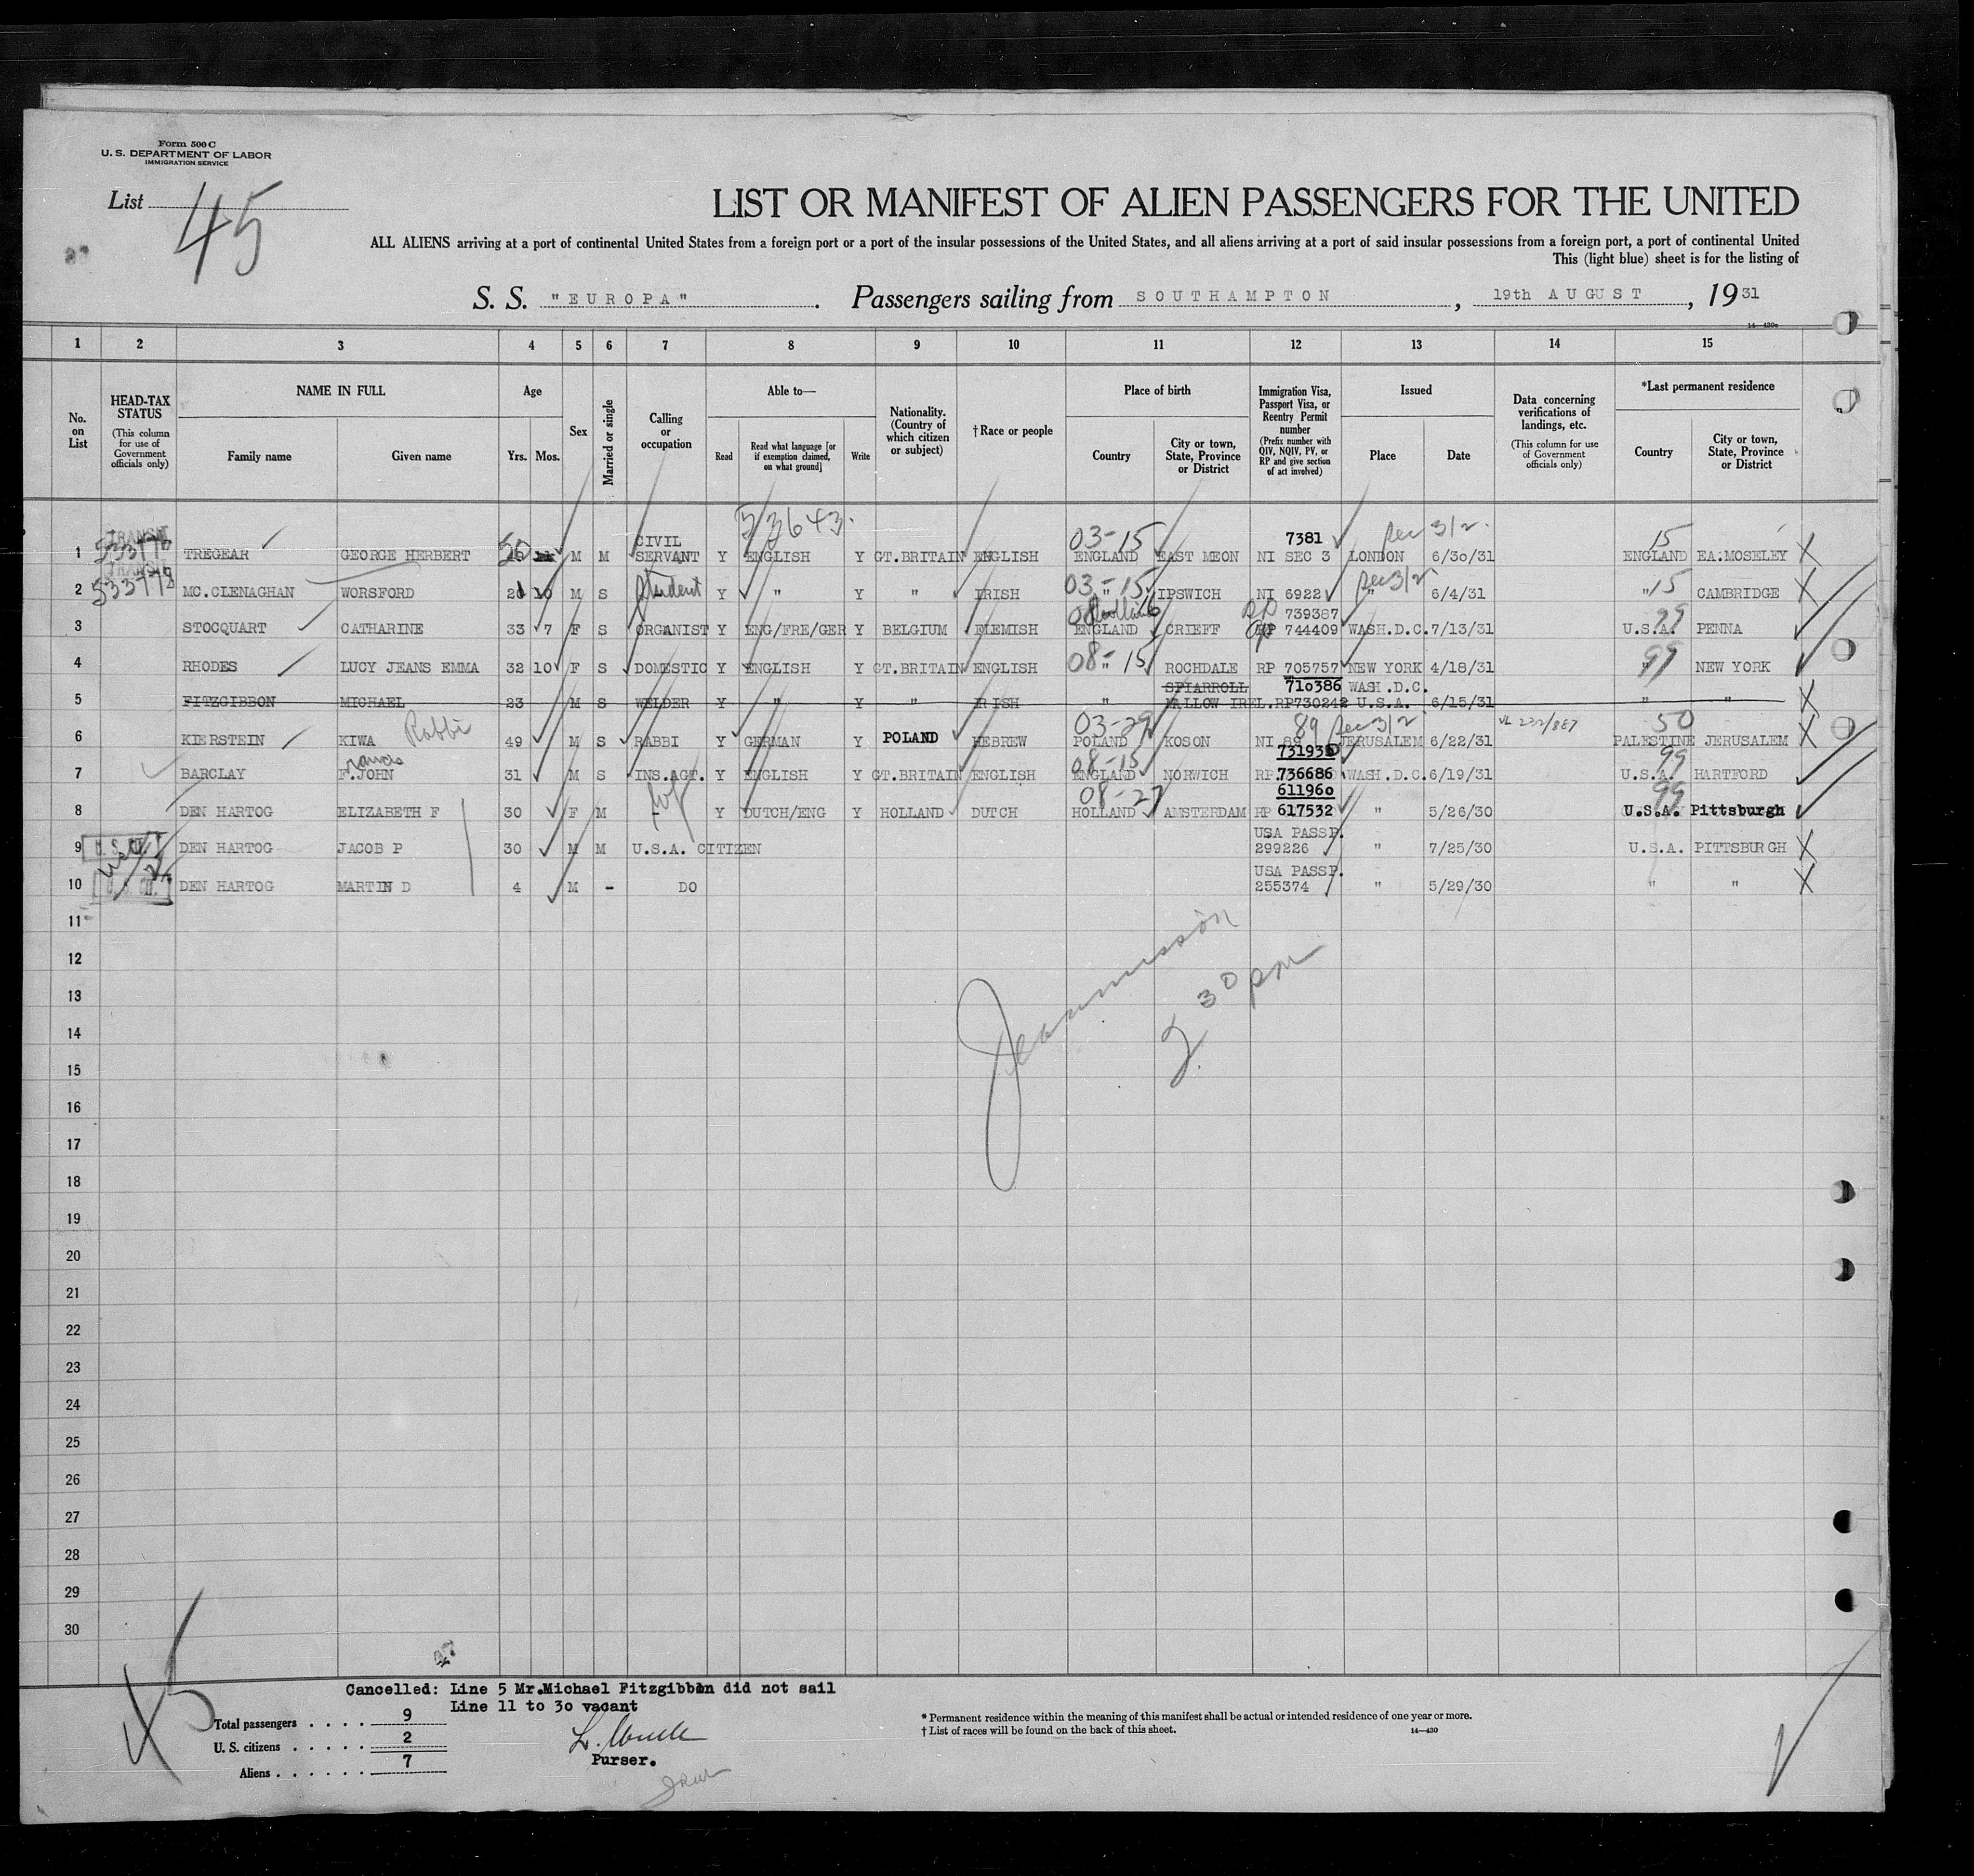 Form 500 C
U. S. DEPARTMENT OF LABOR
IMMIGRATION SERVICE
List 45
LIST OR MANIFEST OF ALIEN PASSENGERS FOR THE UNITED
ALL ALIENS arriving at a port of continental United States from a foreign port or a port of the insular possessions of the United States, and all aliens arriving at a port of said insular possessions from a foreign port, a port of continental United
This (light blue) sheet is for the listing of
S. S. "EUROPA". Passengers sailing from SOUTHAMPTON, 19th AUGUST, 1931
14—430c
1 2 3 4 5 6 7 8 9 10 11 12 13 14 15
No. on List
HEAD-TAX STATUS (This column for use of Government officials only)
NAME IN FULL Family name Given name
Age Yrs. Mos.
Sex
Married or single
Calling or occupation
Able to— Read Read what language [or if exemption claimed, on what ground] Write
Nationality. (Country of which citizen or subject)
†Race or people
Place of birth Country City or town, State, Province or District
Immigration Visa, Passport Visa, or Reentry Permit number (Prefix number with QIV, NQIV, PV, or RP and give section of act involved)
Issued Place Date
Data concerning verifications of landings, etc. (This column for use of Government officials only)
*Last permanent residence Country City or town, State, Province or District
53643
TRANSIT CIVIL 03-15 7381 Sec 3/2 15
1 533776 TREGEAR GEORGE HERBERT 50 M M SERVANT Y ENGLISH Y GT.BRITAIN ENGLISH ENGLAND EAST MEON NI SEC 3 LONDON 6/30/31 ENGLAND EA:MOSELEY X
TRANSIT 03-15 Sec 3/2 15
2 533778 MC.CLENAGHAN WORSFORD M S Student Y " Y " IRISH " IPSWICH NI 6922 " 6/4/31 " CAMBRIDGE X
08 RP 739387 99
3 STOCQUART CATHARINE 33 7 F S ORGANIST Y ENG/FRE/GER Y BELGIUM FLEMISH ENGLAND CRIEFF RP 744409 WASH.D.C. 7/13/31 U.S.A. PENNA
08-15 99
4 RHODES LUCY JEANS EMMA 32 10 F S DOMESTIC Y ENGLISH Y GT.BRITAIN ENGLISH " ROCHDALE RP 705757 NEW YORK 4/18/31 " NEW YORK
710386 WASH.D.C.
5 FITZGIBBON MICHAEL 23 M S WELDER Y " Y " IRISH " MALLOW IREL. RP730242 U.S.A. 6/15/31 " " X
Rabbi 03-29 89 Sec 3/2 VL 232/887 50
6 KIERSTEIN KIWA 49 M S RABBI Y GERMAN Y POLAND HEBREW POLAND KOSON NI 89 JERUSALEM 6/22/31 PALESTINE JERUSALEM X
rancis 08-15 731930 99
7 BARCLAY F.JOHN 31 M S INS.AGT. Y ENGLISH Y GT.BRITAIN ENGLISH ENGLAND NORWICH RP 736686 WASH.D.C. 6/19/31 U.S.A. HARTFORD
wf 08-27 611960 99
8 DEN HARTOG ELIZABETH F 30 F M - Y DUTCH/ENG Y HOLLAND DUTCH HOLLAND AMSTERDAM RP 617532 " 5/26/30 U.S.A. Pittsburgh
USA PASSP.
9 DEN HARTOG JACOB P 30 M M U.S.A. CITIZEN 299226 " 7/25/30 U.S.A. PITTSBURGH X
USA PASSP.
10 DEN HARTOG MARTIN D 4 M - DO 255374 " 5/29/30 " " X
11
12
13
14
15
16
17
18
19
20
21
22
23
24
25
26
27
28
29
30
30 pm
Cancelled: Line 5 Mr.Michael Fitzgibbon did not sail
Line 11 to 30 vacant
45
Total passengers . . . . 9
U. S. citizens . . . . . 2
Aliens . . . . . . 7
Purser.
* Permanent residence within the meaning of this manifest shall be actual or intended residence of one year or more.
† List of races will be found on the back of this sheet. 14—430